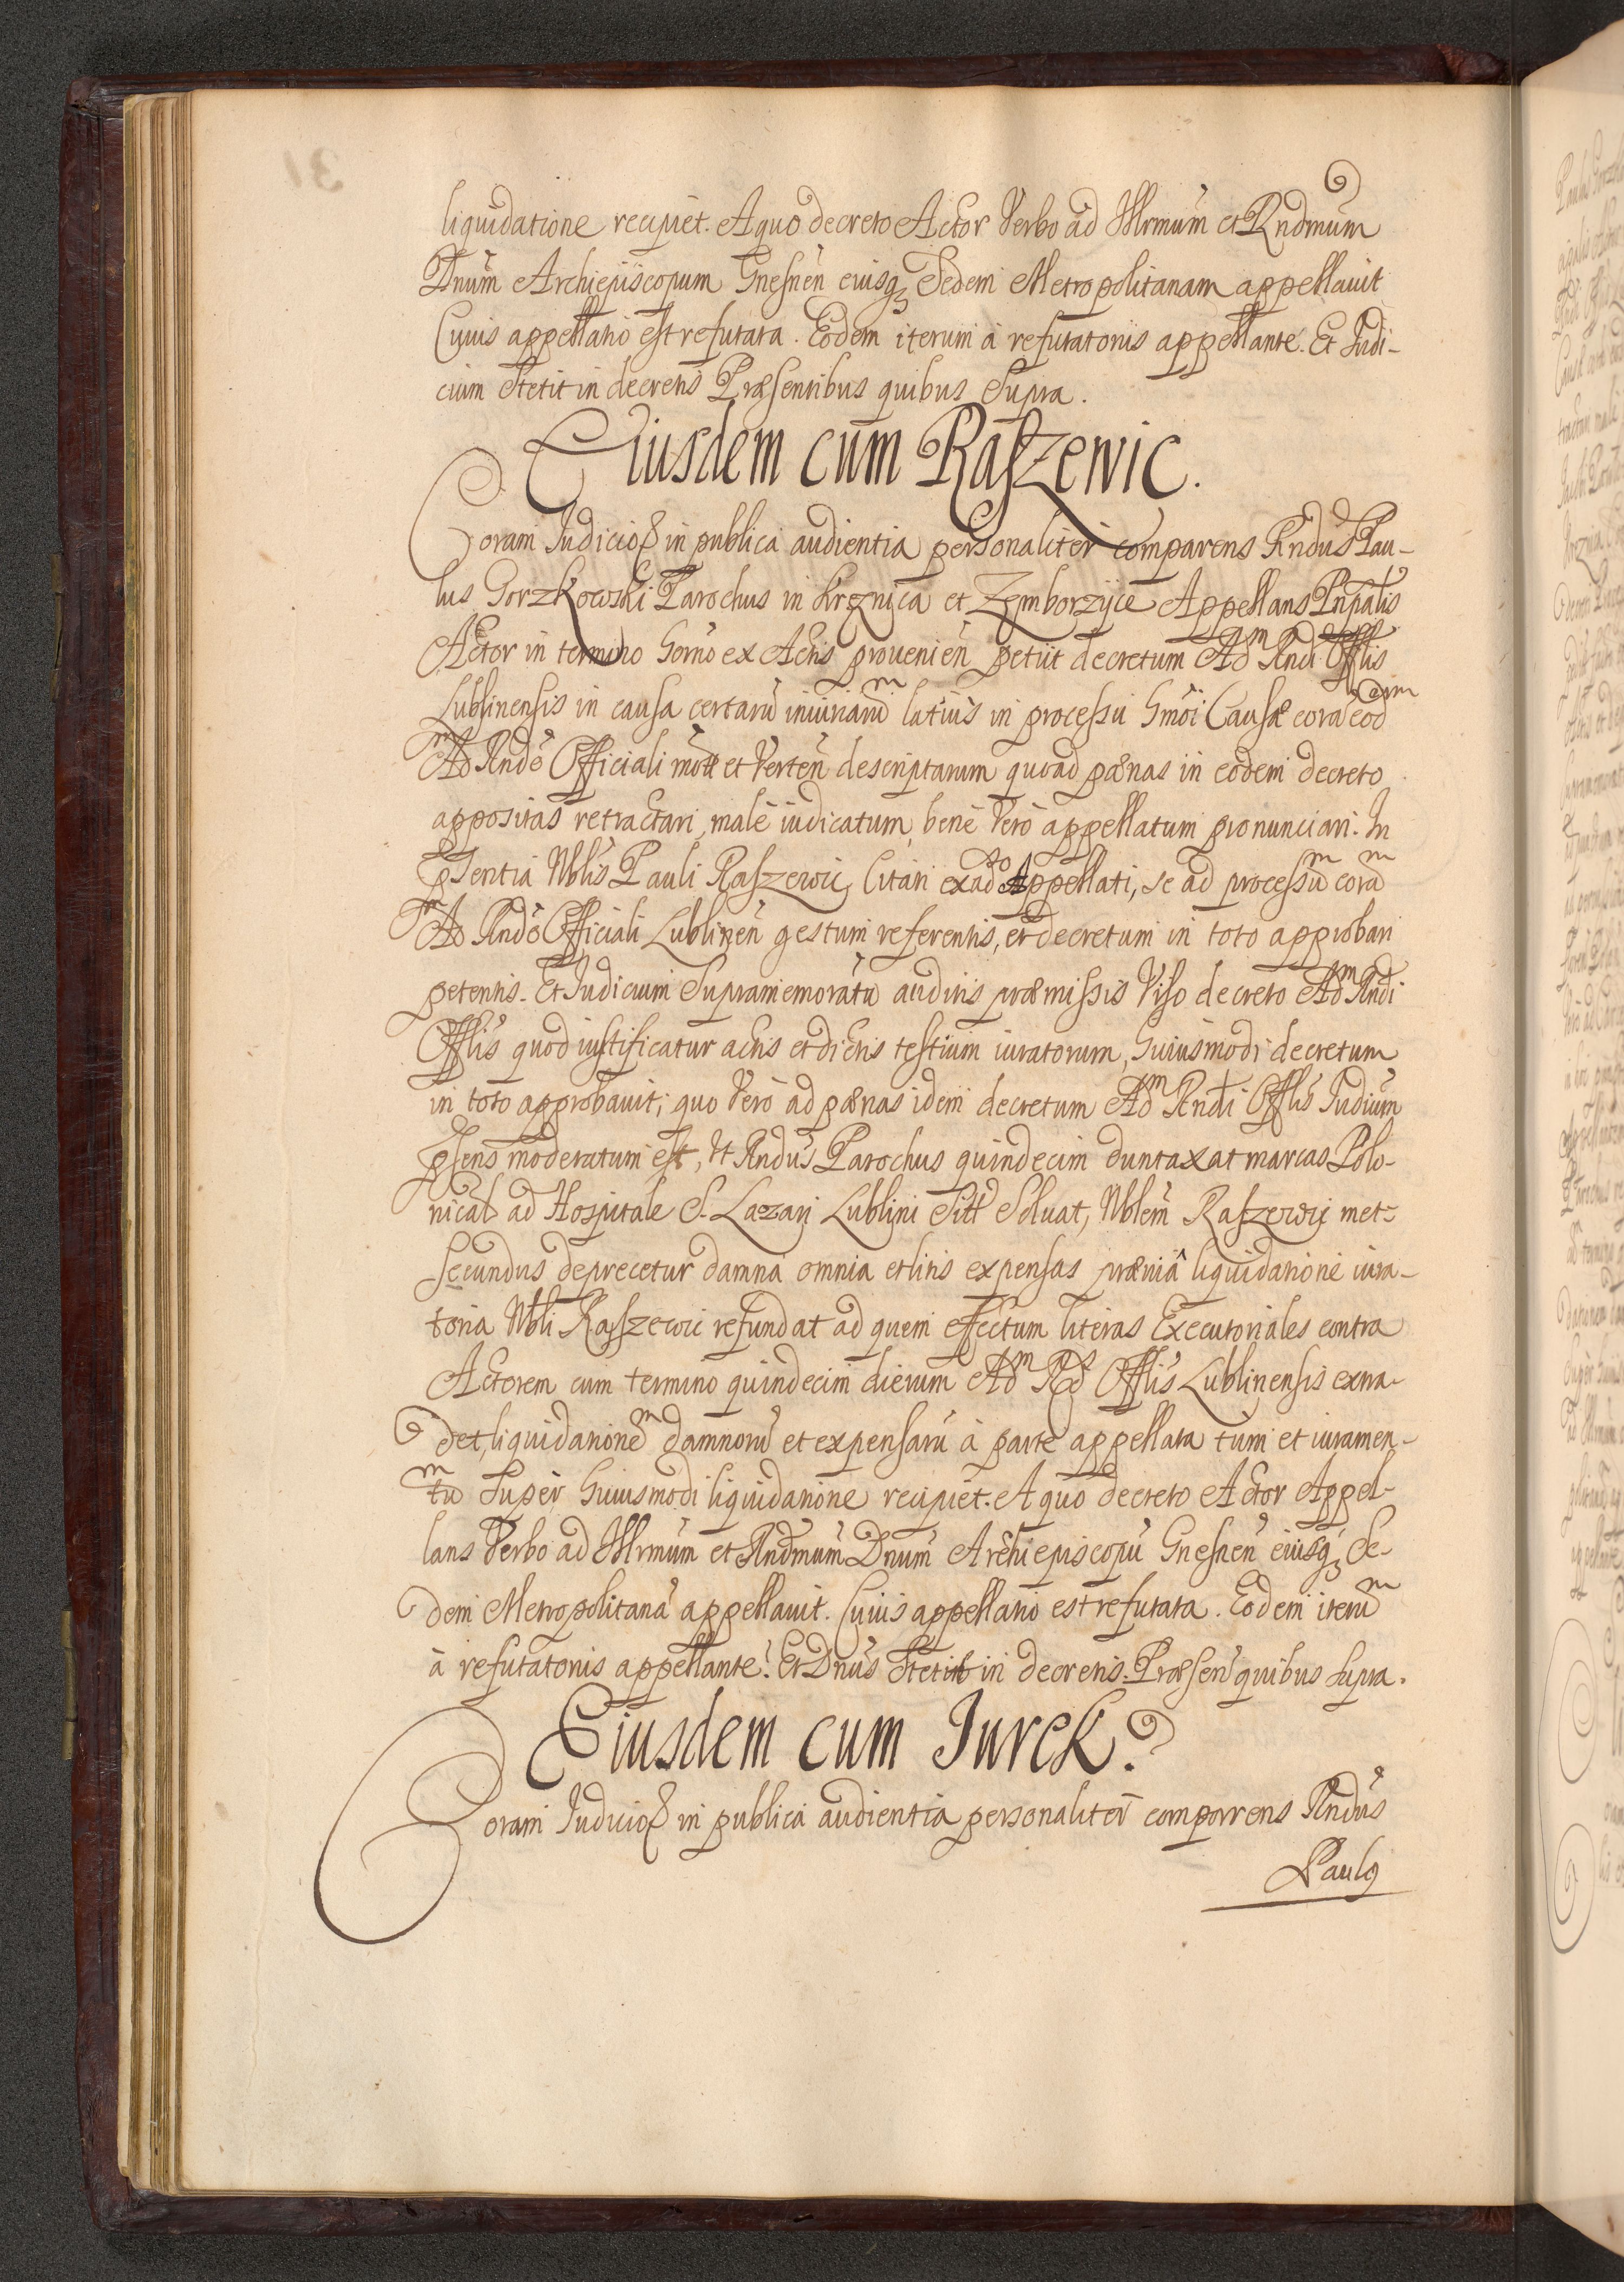 liquidatione recipiet. A quo decreto Actor Verbo ad Illrmum et Rndmum
Dnum Archiepiscopum Gnesnen eiusq; Sedem Metropolitanam appellauit
Cuius appellatio est refutata. Eodem iterum à refutatoriis appellante. Et Judi-
cium stetit in decretis Præsentibus quibus Supra.
Eiusdem cum Raszewic.
Coram Judicio in publica audientia personaliter comparens Rndus Pau-
lus Gorzkowski Parochus in Kręznica et Zemborzyce Appellans Pnpalis
Actor in termino ex Actis prouenien petiit decretum Adm Rndi Offlis
Lublinensis in causa certarum iniuriarum latius in processu Gmoi Causæ coram eodem
Adm Rndo Officiali mota et Verten descriptarum quoad pœnas in eodem decreto
appositas retractari, male iudicatum, bene Vero appellatum pronunciari. In
Psentia Nblis Pauli Raszewic, Citati ex aduo Appellati, se ad processum coram
Adm Rndo Officiali Lublinen gestum referentis, et decretum in toto approbari
petentis. Et Judicium Supramemoratu auditis præmissis Viso decreto Adm Rndi
Offlis quod iustificatur actis et dictis testium iuratorum, Guiusmodi decretum
in toto approbauit; quo Vero ad pœnas idem decretum Adm Rndi Offlis Judium
Psens moderatum est, Vt Rndus Parochus quindecim duntaxat marcas Polo-
nical ad Hospitale S. Lazari Lublini Sitt Soluat, Nblem Raszewic met-
secundus deprecetur damna omnia et litis expensas præuia liquidatione iura-
toria Nbli Raszewic refundat ad quem effectum literas Executoriales contra
Actorem cum termino quindecim dierum Adm Rds Offlis Lublinensis extra-
det, liquidationem damnoru et expensaru à parte appellata tum et iuramen-
tum Super Guiusmodi liquidatione recipiet. A quo decreto Actor Appel-
lans Verbo ad Illrmum et Rndmum Dnum Archiepiscopu Gnesnen eiusq; Se-
dem Metropolitana appellauit. Cuius appellatio est refutata. Eodem iterum
à refutatoriis appellante. Et Dnus stetit in decretis. Præsen quibus supra.
Eiusdem cum Jurek.
Coram Judicio in publica audientia personaliter comparens Rndus
Paulus